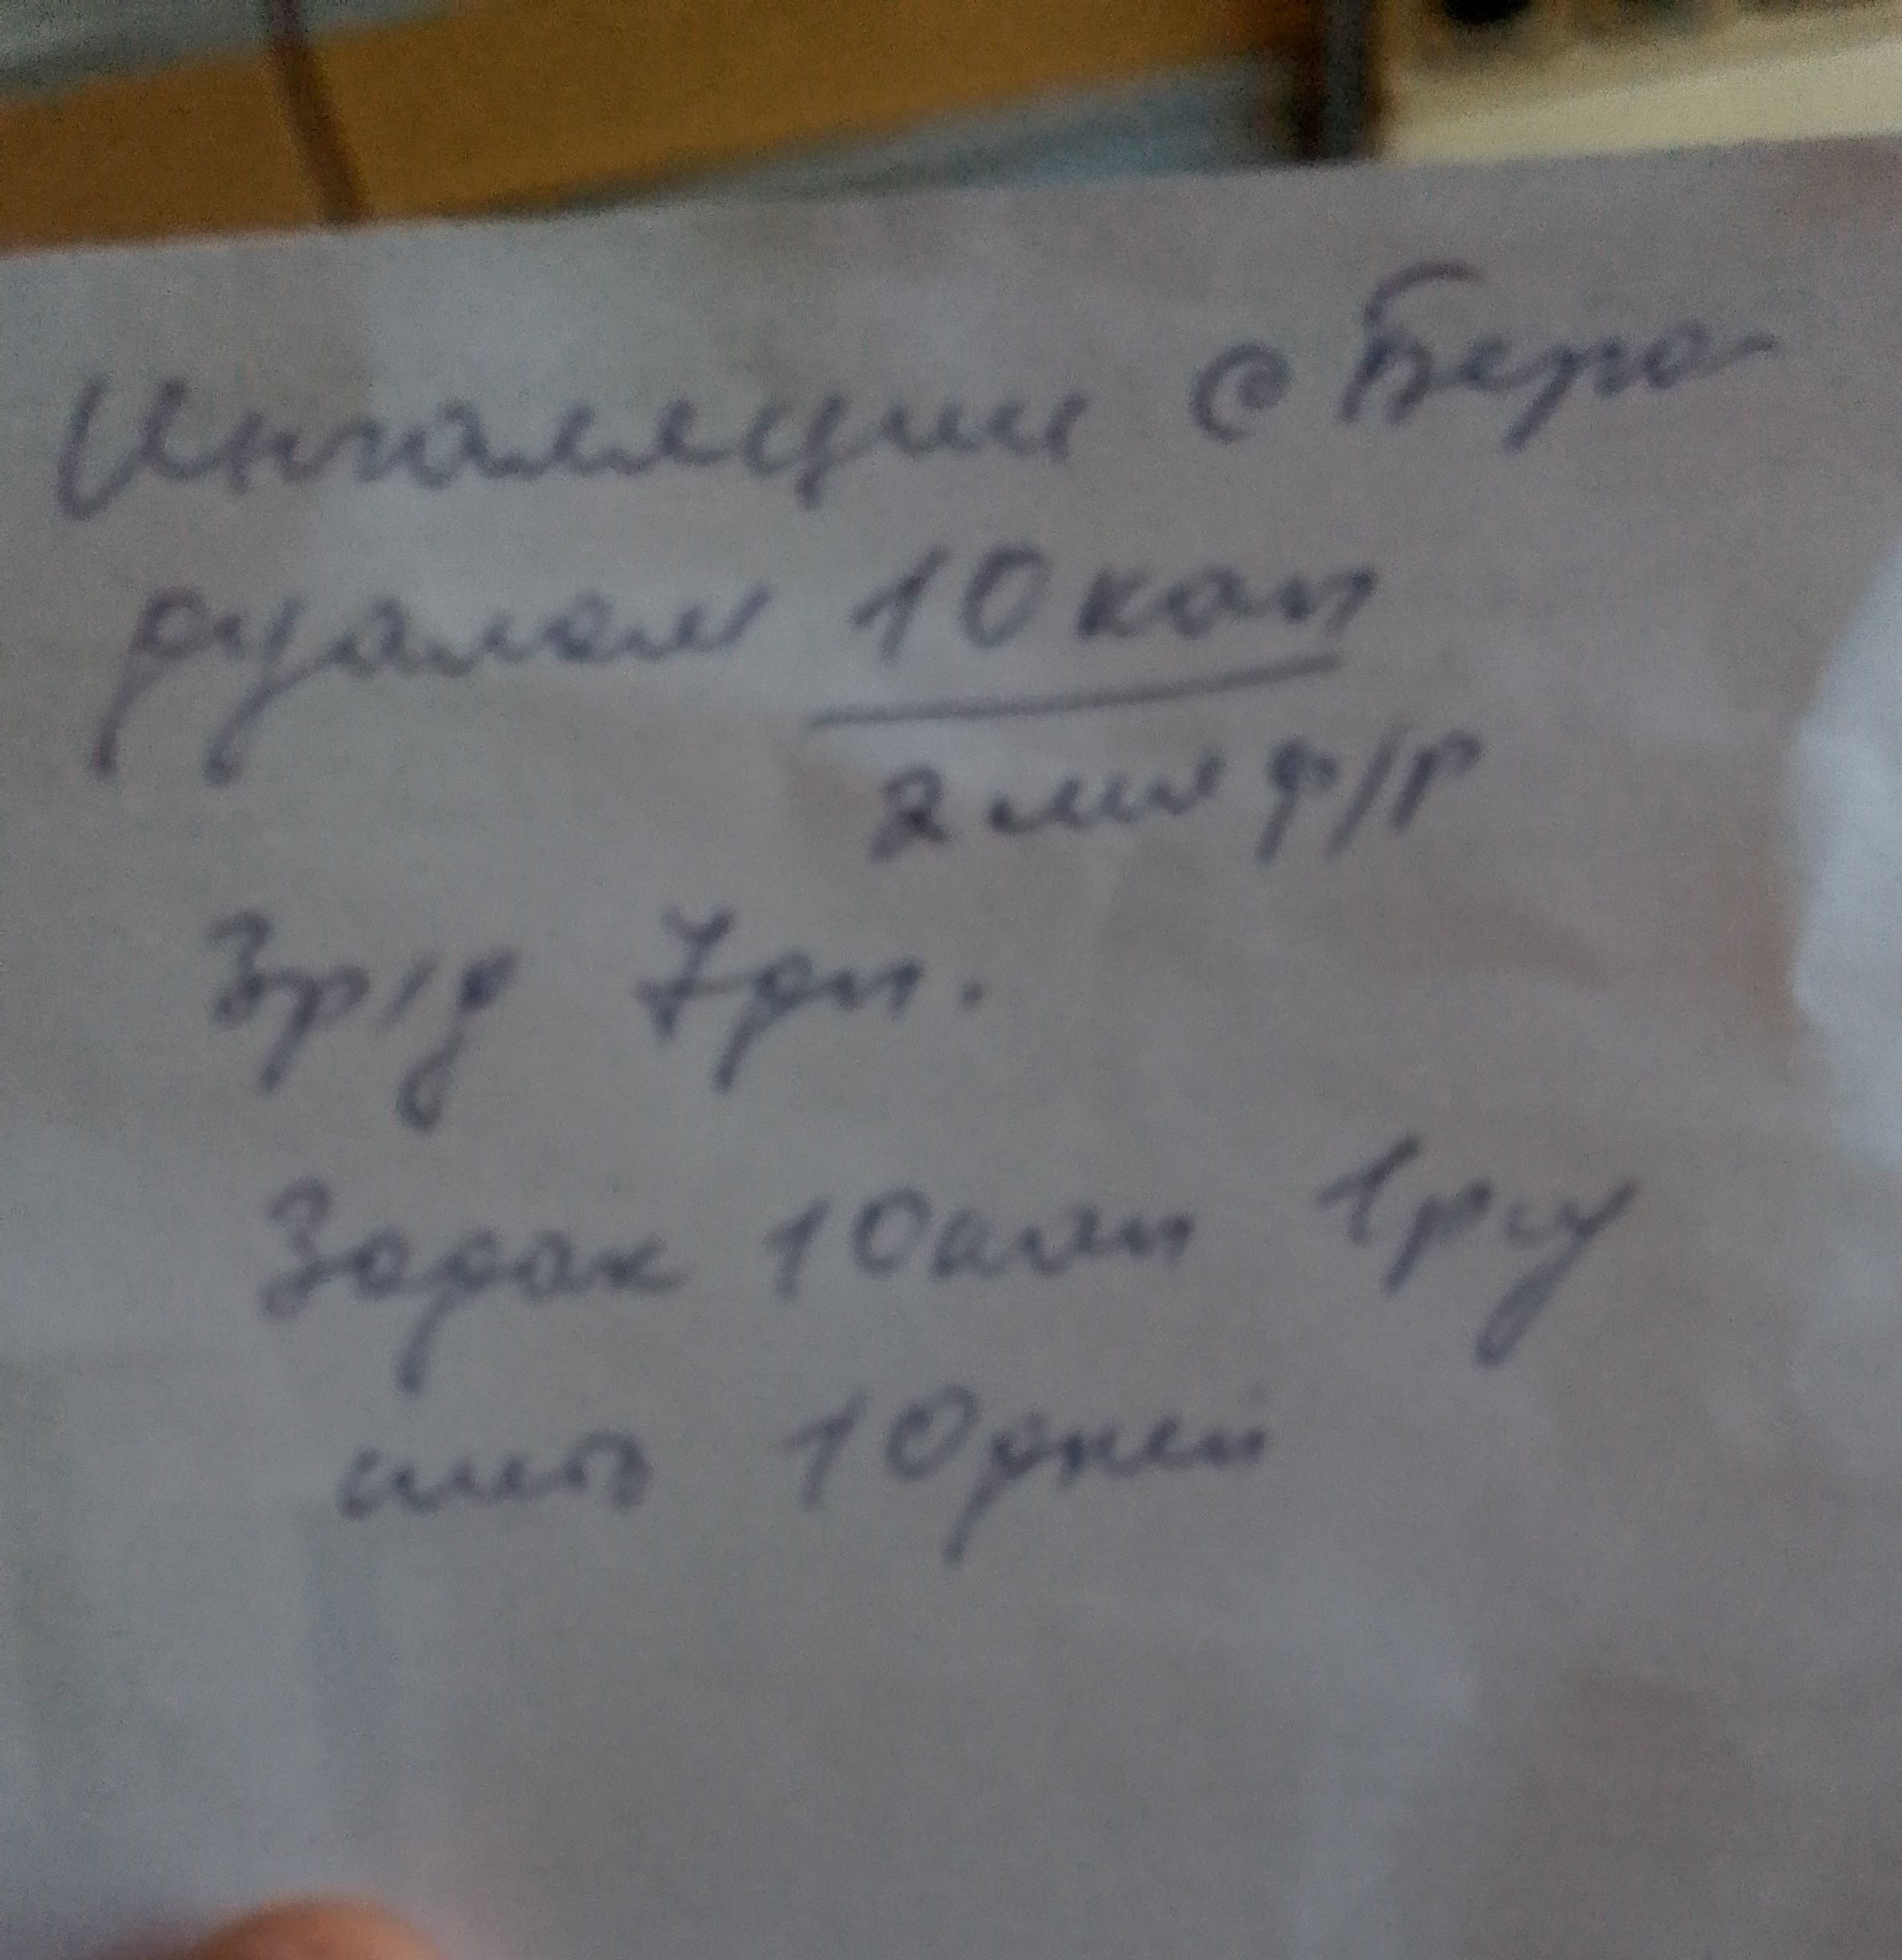 Ингаляции с Беро-
дуалом 10 кап
2 мл ф/р
3р/д 7 дн.
Зодак 10 кап 1р су
10 дней